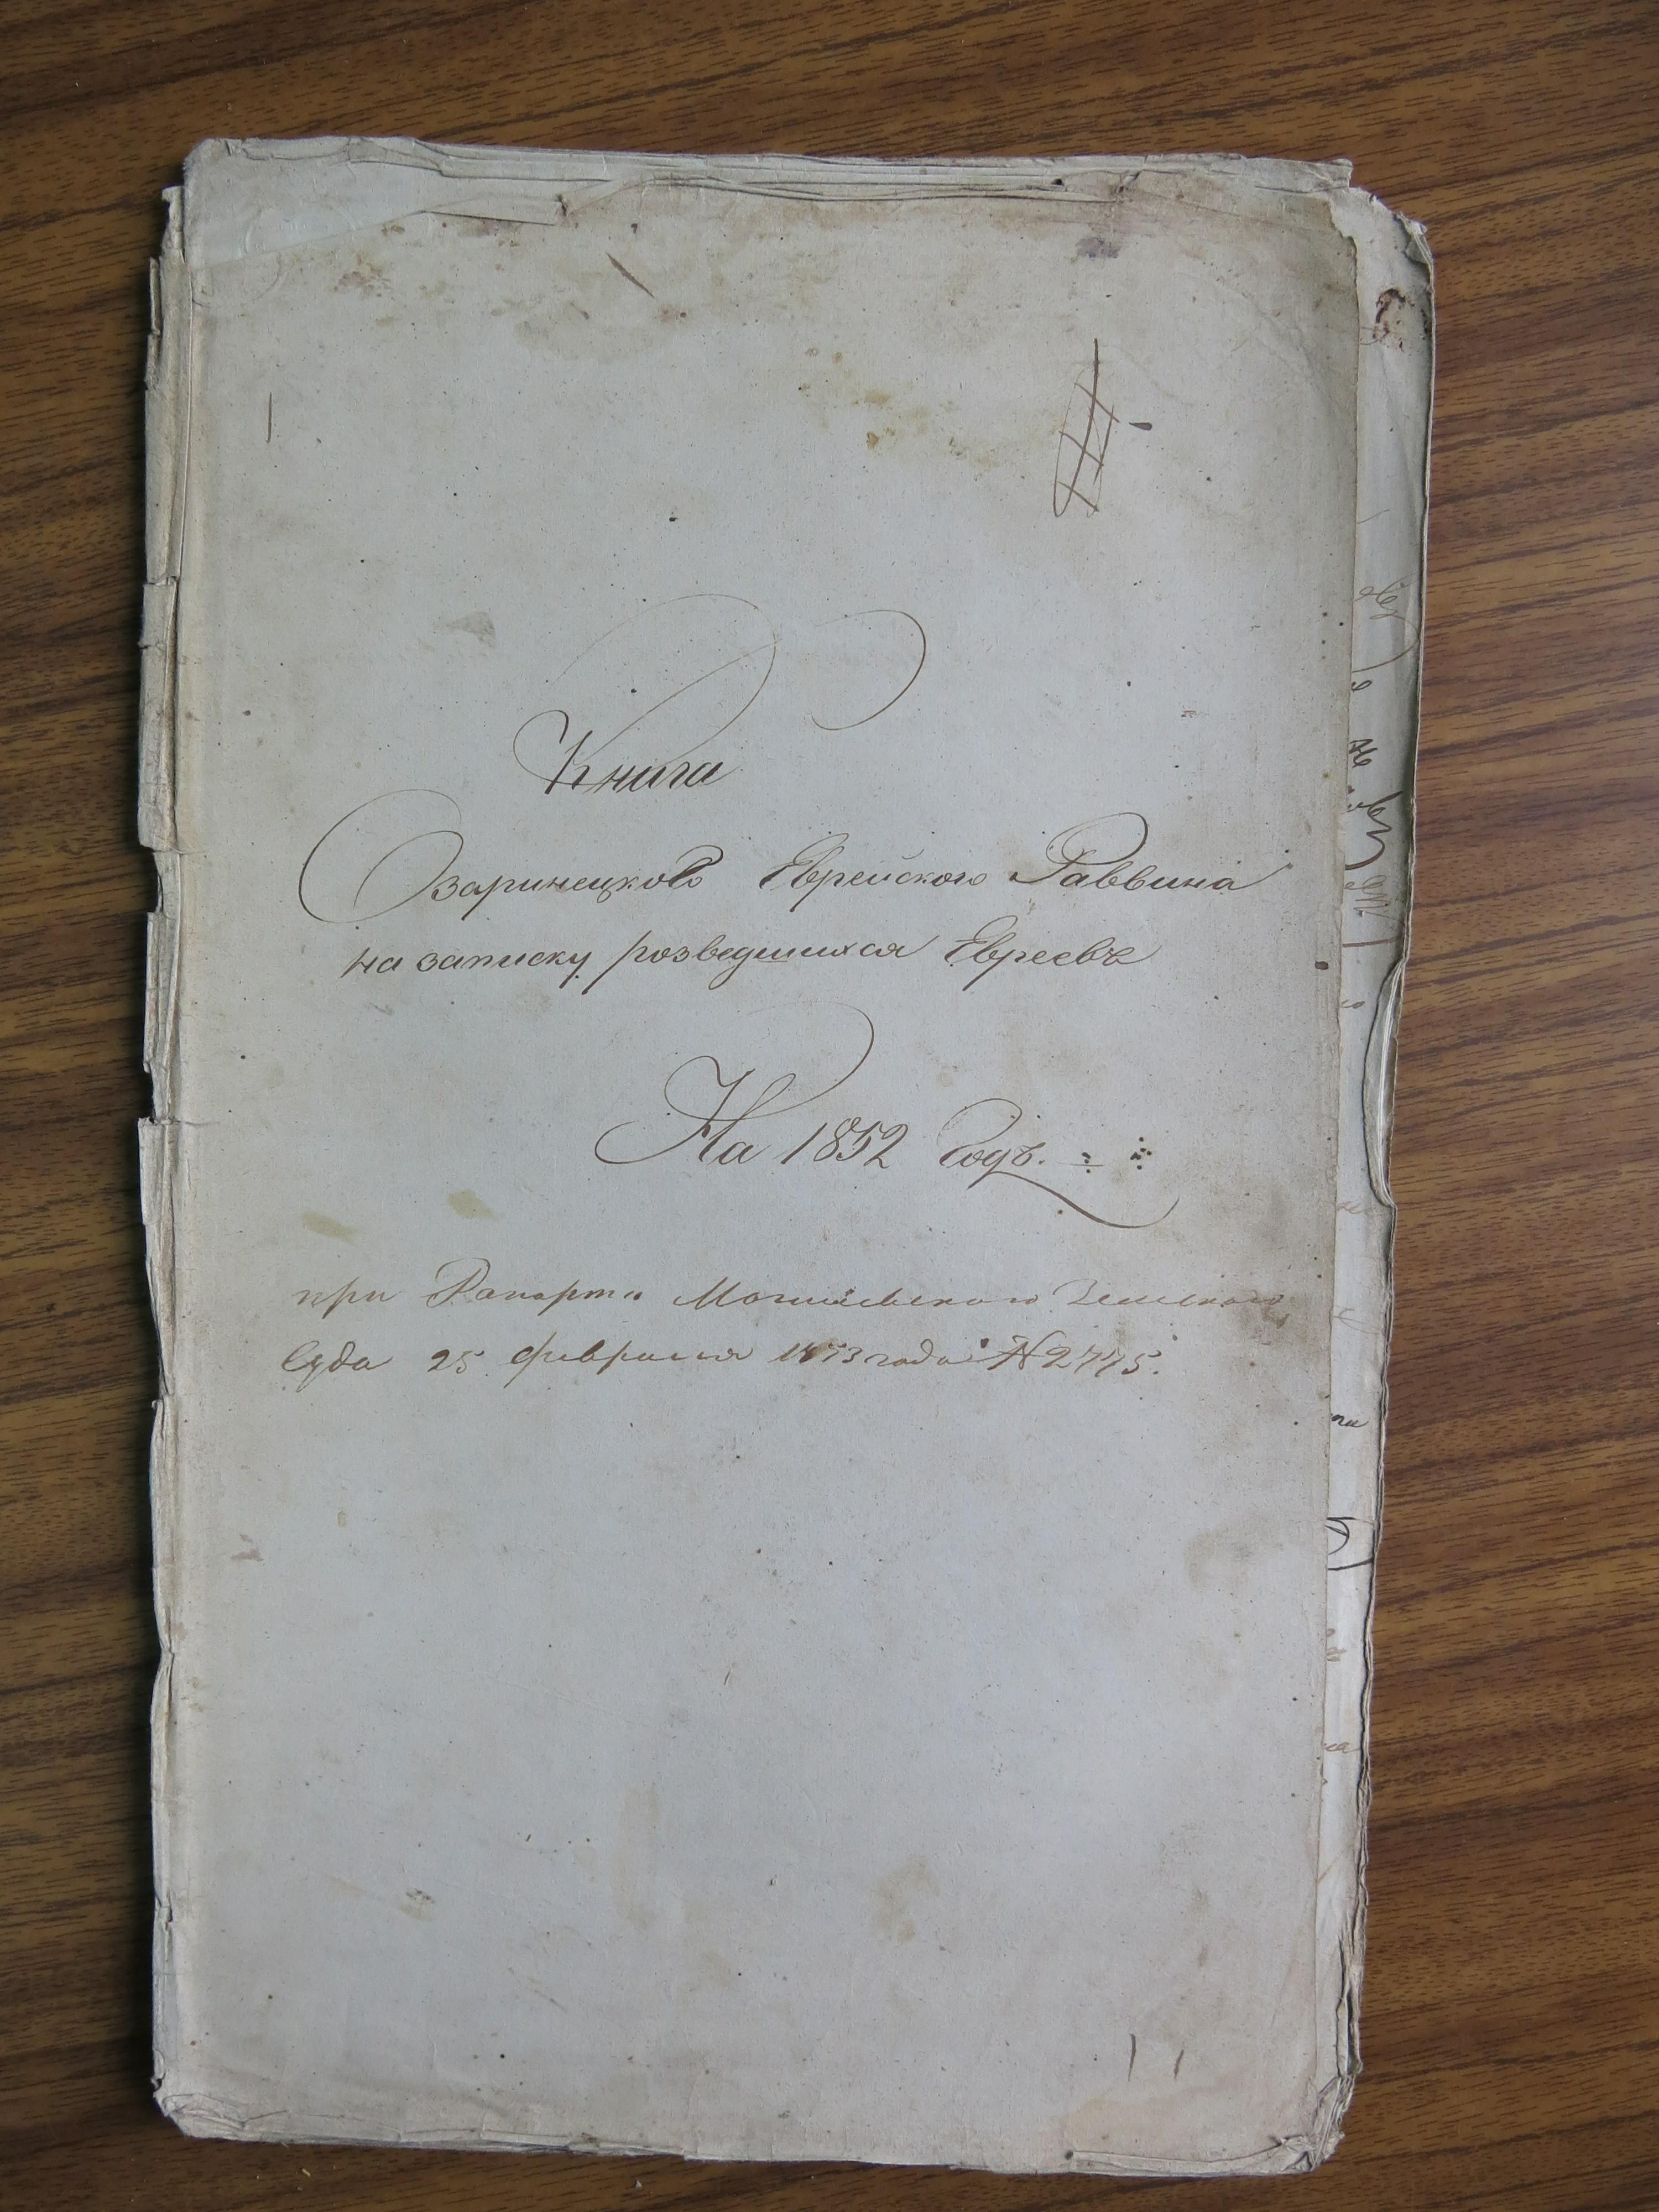 Книга
Озаринецкого Еврейского Раввина
на записку розведшихся Евреевъ
На 1852 Годъ.
при Рапорте Могилевского Земского
Суда 25 февраля 1853 года № 2775.